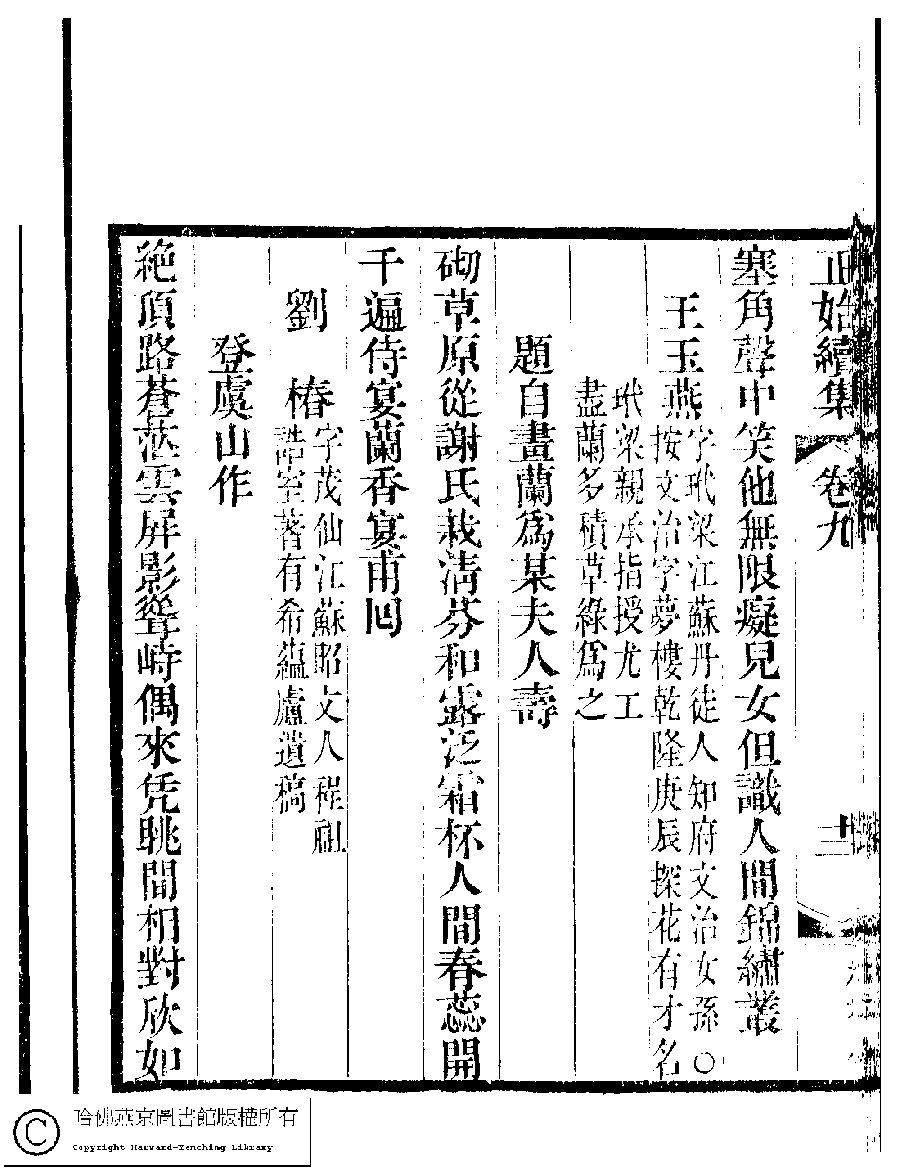 正始續集 卷九
塞角聲中笑他無限癡兒女但識人間錦繡叢
王玉燕字玳梁江蘇丹徒人知府文治女孫○
按文治字夢樓乾隆庚辰探花有才名
玳梁親承指授尤工
盡蘭多積草綠爲之
題自畫蘭爲某夫人壽
砌草原從謝氏栽清芬和露泛霜杯人間春蕊開
千遍侍宴蘭香宴甫回
劉 椿字茂仙江蘇昭文人程祖
誥室著有希蘊廬遺稿
登虞山作
絶頂路蒼茫雲屏影聳峙偶來凭眺間相對欣如
哈佛燕京圖書館版權所有
Copyright Harvard-Yenching Library